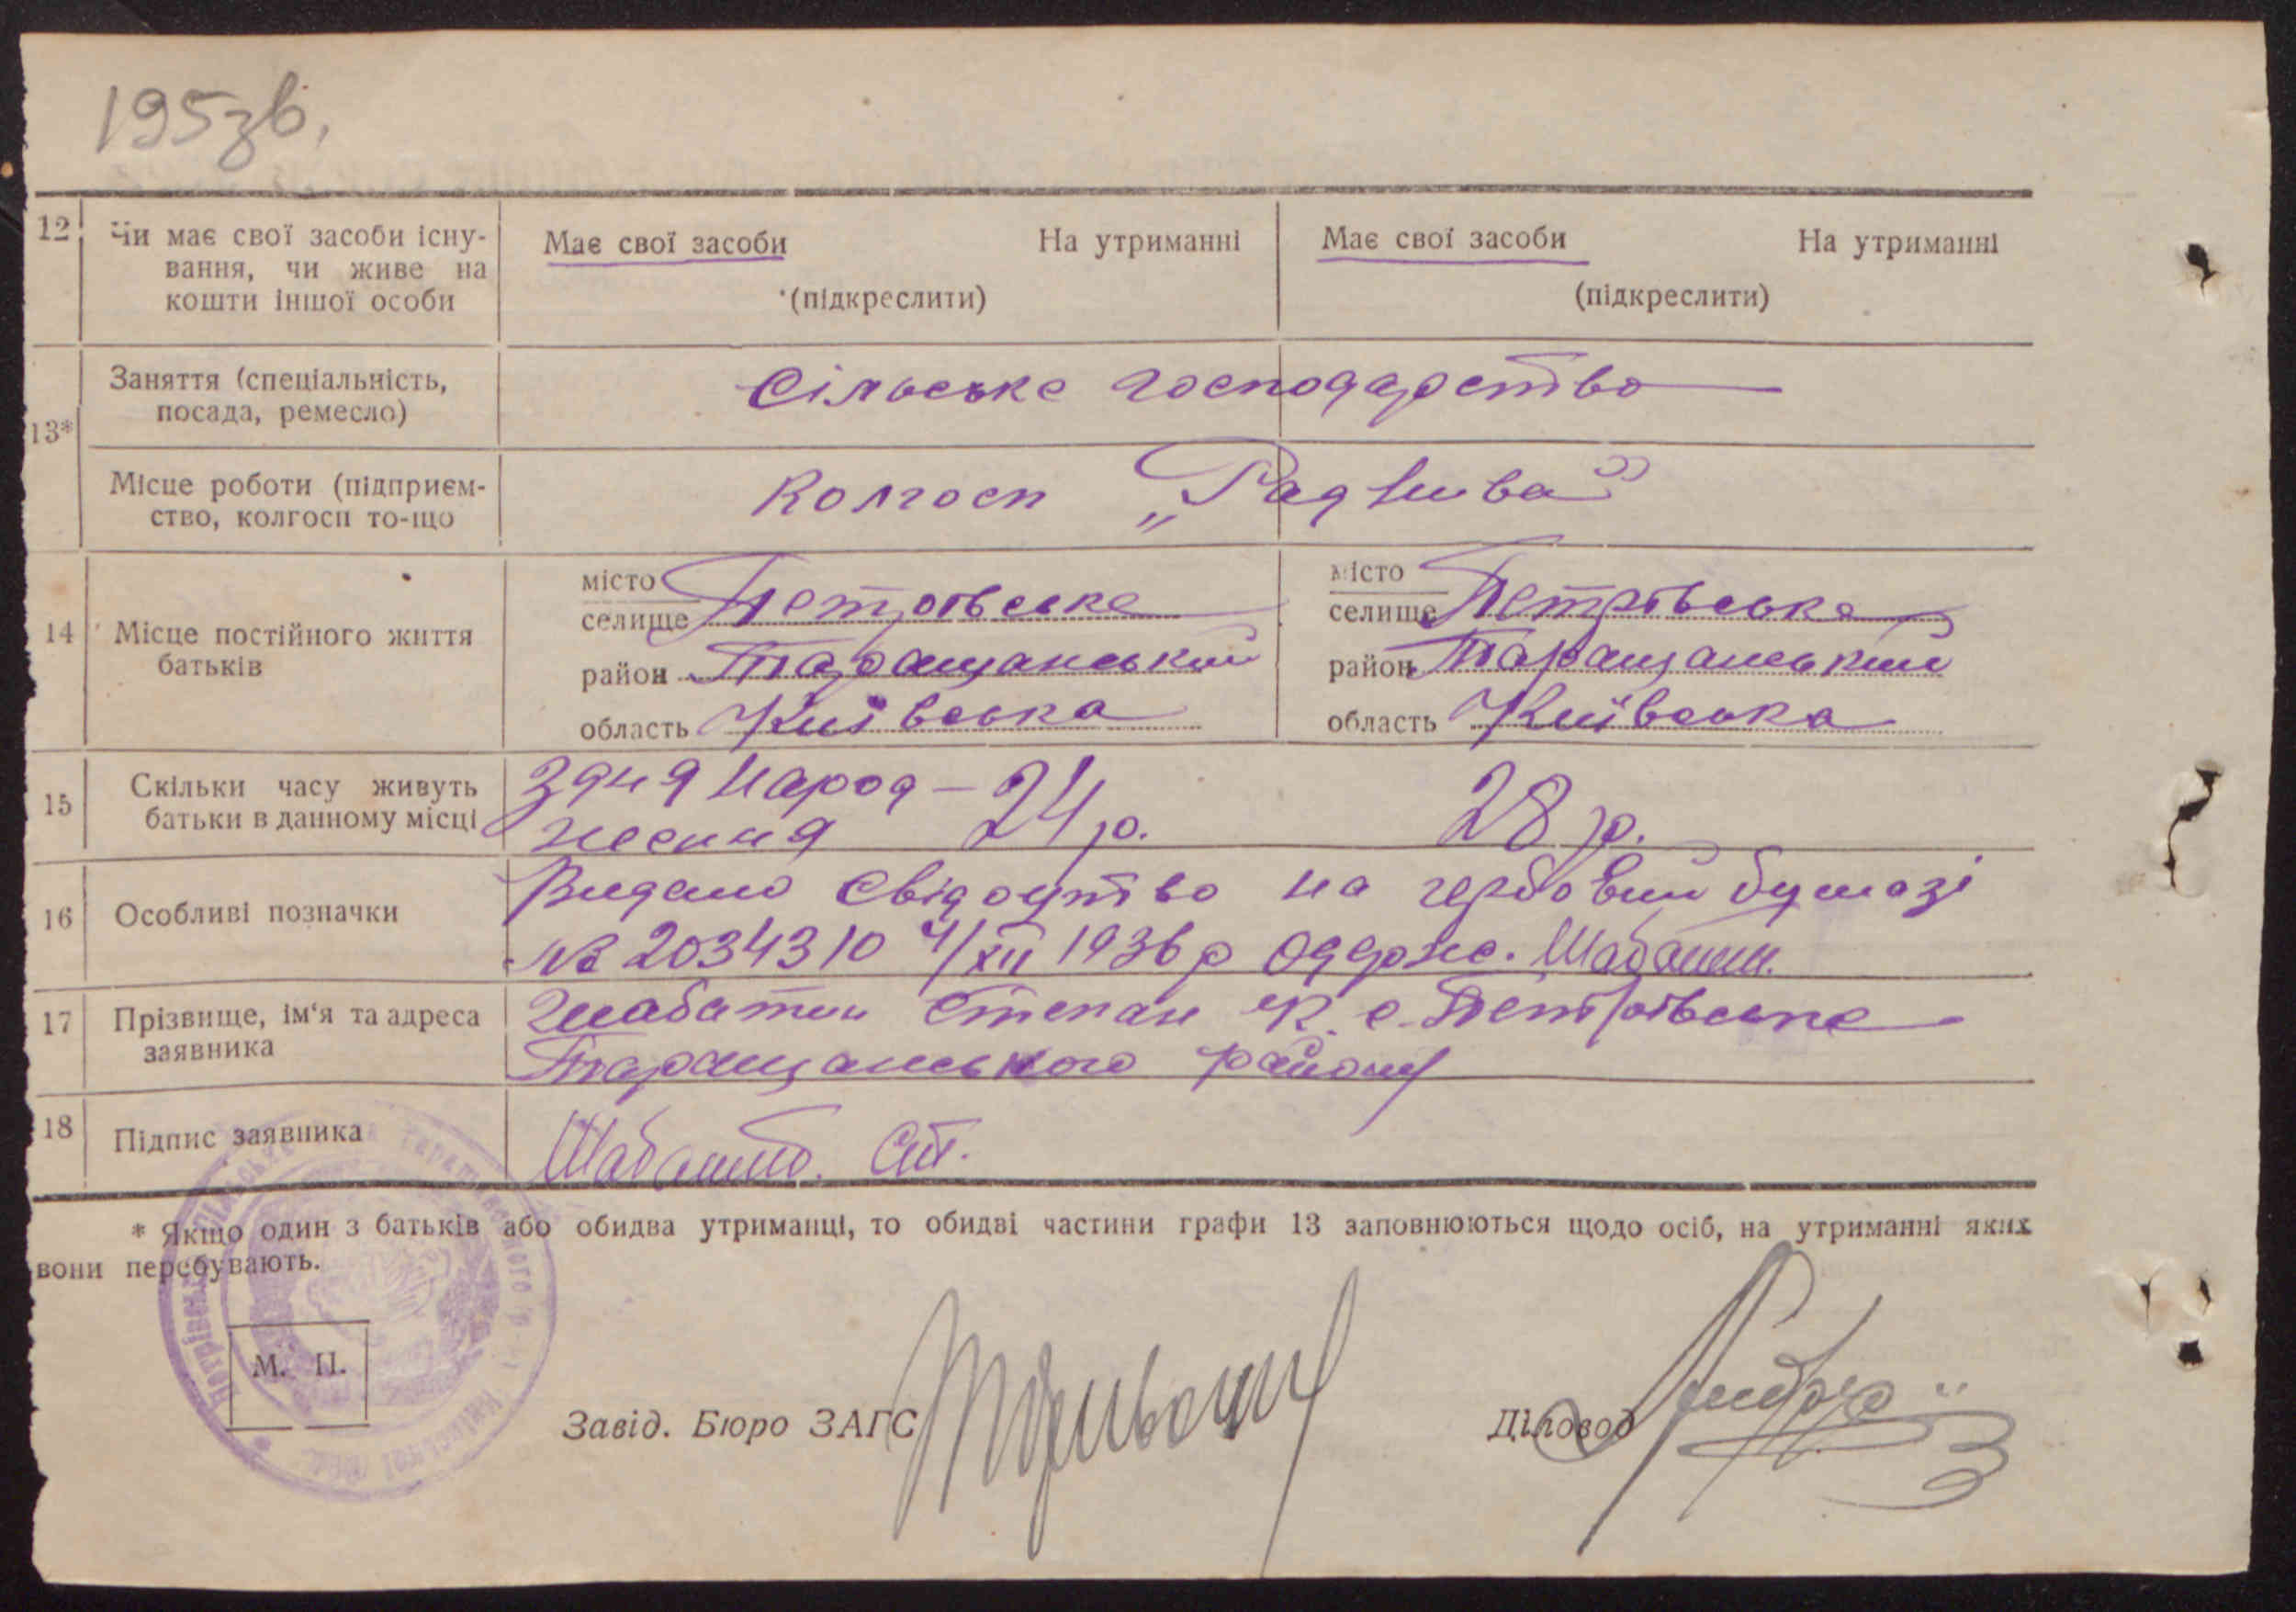 195зв.
12 Чи має свої засоби існу- Має свої засоби На утриманні Має свої засоби На утриманні
вання, чи живе на
кошти іншої особи (підкреслити) (підкреслити)
13* Заняття (спеціальність, Сільське господарство
посада, ремесло)
Місце роботи (підприєм- Колгосп „Рад
ство, колгосп то-що
14 Місце постійного життя батьків
місто
селище Петровське
район Таращанський
область Київська
місто
селище Петровське
район Таращанський
область Київська
15 Скільки часу живуть З дня народ- 24 р. 28 р.
батьки в данному місці ження
16 Особливі позначки Видано свідоцтво на гербовий бумазі
№ 2034310 4/XII 1936 р Одерж. Шабатин.
17 Прізвище, ім'я та адреса Шабатин Степан К. с. Петровське
заявника Таращанського району
18 Підпис заявника Шабатин. Ст.
* Якщо один з батьків або обидва утриманці, то обидві частини графи 13 заповнюються щодо осіб, на утриманні яких
вони перебувають.
М. П.
Завід. Бюро ЗАГС
Діловод